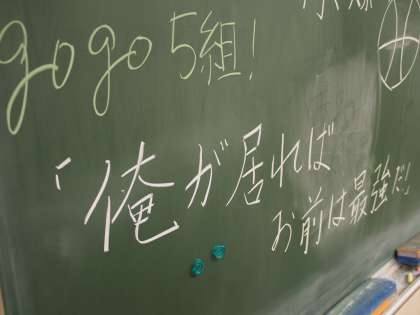 gogo 5組!
「俺が居れば
お前は最強だ!